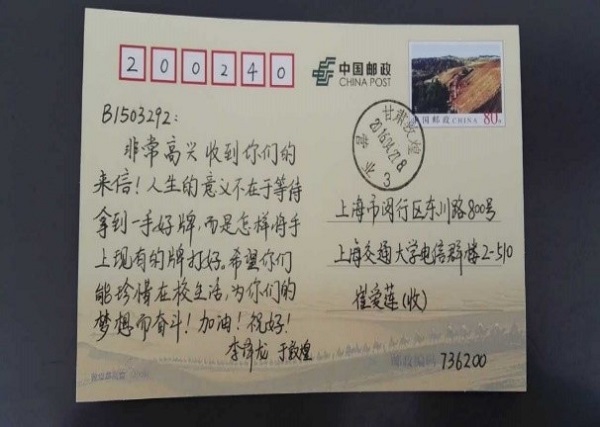 200240
中国邮政
CHINA POST
中国邮政 CHINA 80分
甘肃敦煌
2016.04.27.8
营业
3
B1503292：
非常高兴收到你们的
来信！人生的意义不在于等待
拿到一手好牌，而是怎样将手
上现有的牌打好。希望你们
能珍惜在校生活，为你们的
梦想而奋斗！加油！祝好！
于敦煌
上海市闵行区东川路800号
上海交通大学电信群楼2-510
崔爱莲（收）
邮政编码 736200